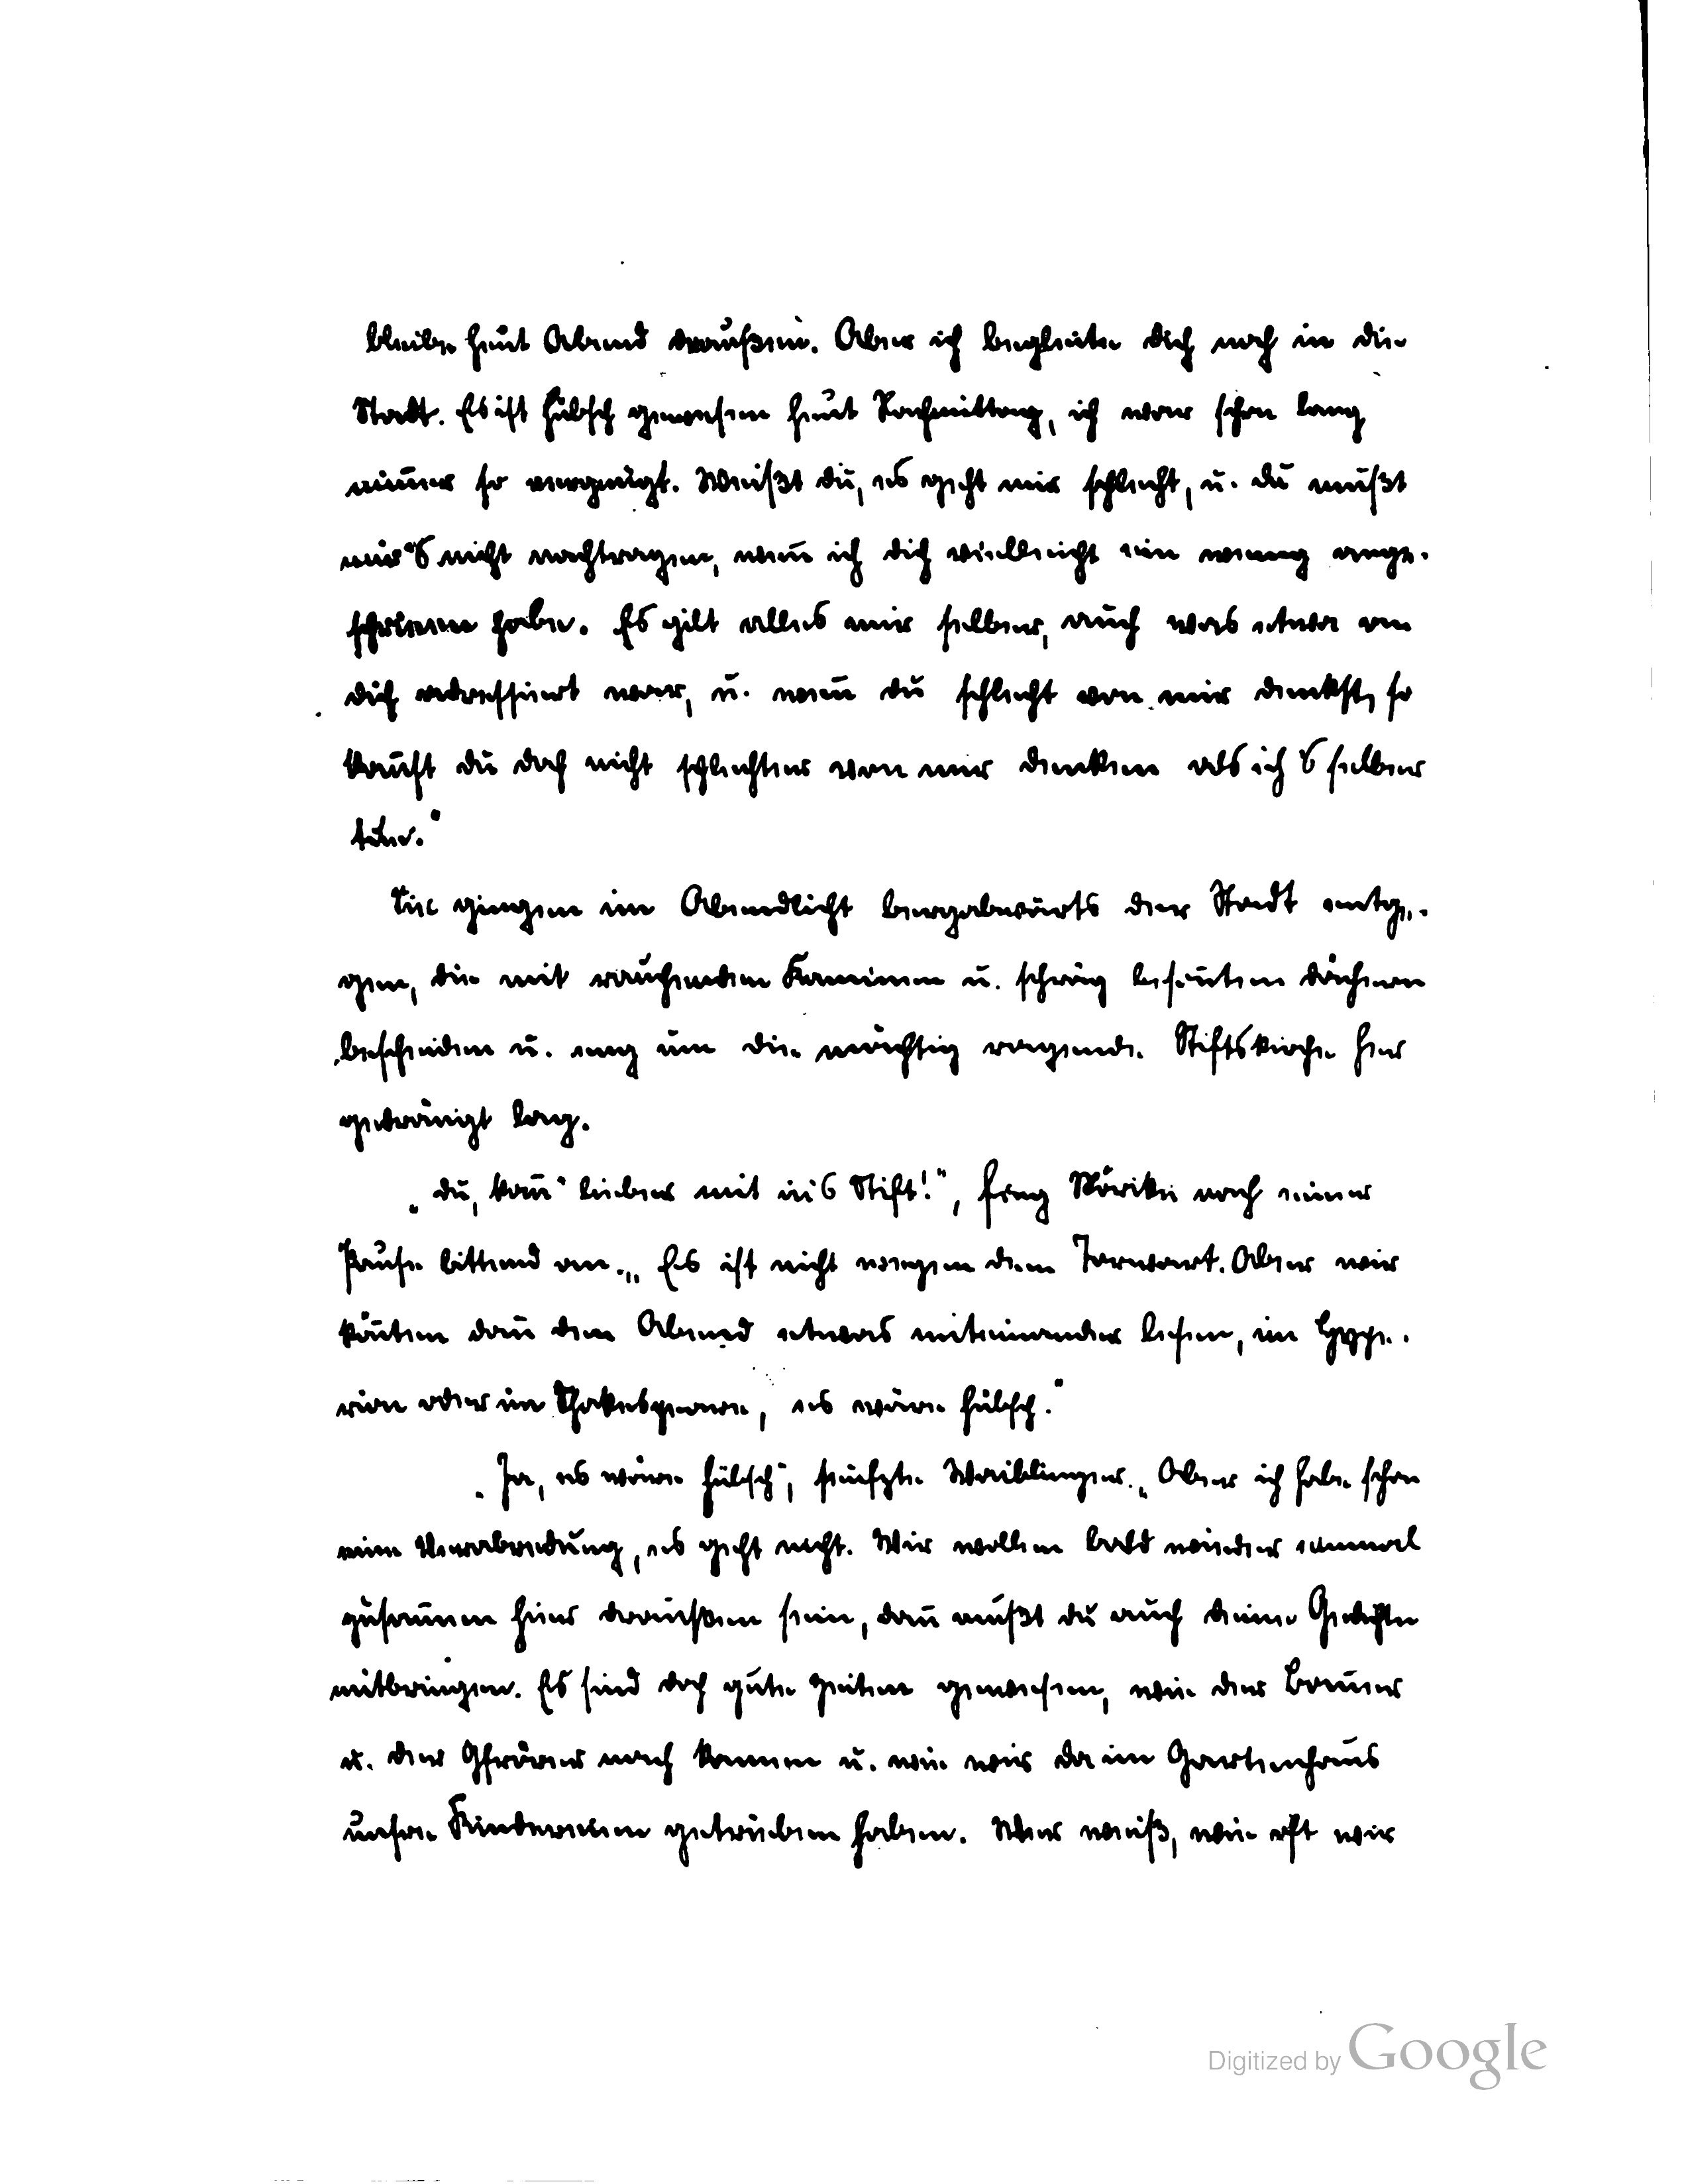 bleibe heut Abend draußen. Aber ich begleite dich noch in die
Stadt. Es ist hübsch gewesen heut Nachmittag, ich war schon lang
nim̄er so vergnügt. Weißt du, es geht mir schlecht, u. du mußt
mir's nicht nachtragen, wen̄ ich dich vielleicht ein wenig ange-
schrieen habe. Es gilt alles mir selber, auch was etwa an
dich adressiert war, u. wen̄ du schlecht von mir denkst, so
kan̄st du doch nicht schlechter von mir denken als ich's selber
tue."
Sie gingen im Abendlicht bergabwärts der Stadt entge-
gen, die mit rauchenden Kaminen u. schräg besonnten Dächern
bescheiden u. eng um die mächtig ragende Stiftskirche her
gedrängt lag.
„Du, kom̄ lieber mit in's Stift!", fing Mörike nach einer
Pause bittend an. „Es ist nicht wegen dem Torwart. Aber wir
kön̄ten dan̄ den Abend etwas miteinander lesen, im Hype-
rion oder im Shakespeare, es wäre hübsch."
„Ja, es wäre hübsch", seufzte Waiblinger. „Aber ich habe schon
eine Verabredung, es geht nicht. Wir wollen bald wieder einmal
zusam̄en hier draußen sein, dan̄ mußt du auch deine Gedichte
mitbringen. Es sind doch gute Zeiten gewesen, wie der Bauer
u. der Gfrörer noch kamen u. wie wir da im Gartenhaus
unsre Kindereien getrieben haben. Wer weiß, wie oft wir
Digitized by Google